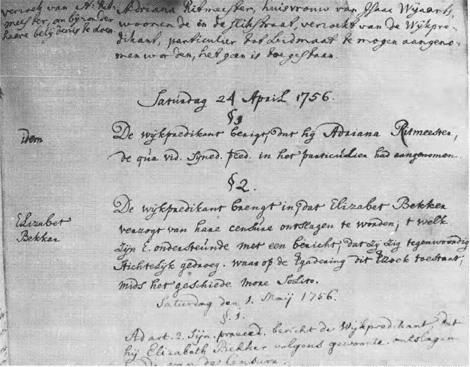 versoek van A: Rit-
meester, om bijzonder
haare belijdenis te doen
Adriana Ritmeester, huisvrouw van Isaac Wijaarts,
woonende in de Slibstraat, verzoekt van de Wijkpre-
dikant, particulier tot Lidmaat te mogen aangeno-
men worden, het geen is toegestaan.
Saturdag 24 April 1756.
§ 1
idem
De wijkpredikant berigt, dat hij Adriana Ritmeester,
de qua vid. Syned. pced. in het particulier had aangenomen.
§ 2.
Elizabet
Bekker
De wijkpredikant brengt in, dat Elizabet Bekker
verzogt van hare censure ontslagen te worden; t welk
zijn E. ondersteunde met een bericht, dat zij zig tegenwoordig
stichtelijk gedroeg. waar op de Vgadering dit verzoek toestaat,
mids het geschiede more solito.
Saturdag den 1. Maij 1756.
§. 1.
Ad art. 2. Syn. praeced. bericht de Wijkpredikant, dat
hij Elizabeth Bekker volgens gewoonte ontslagen
van de Censura.